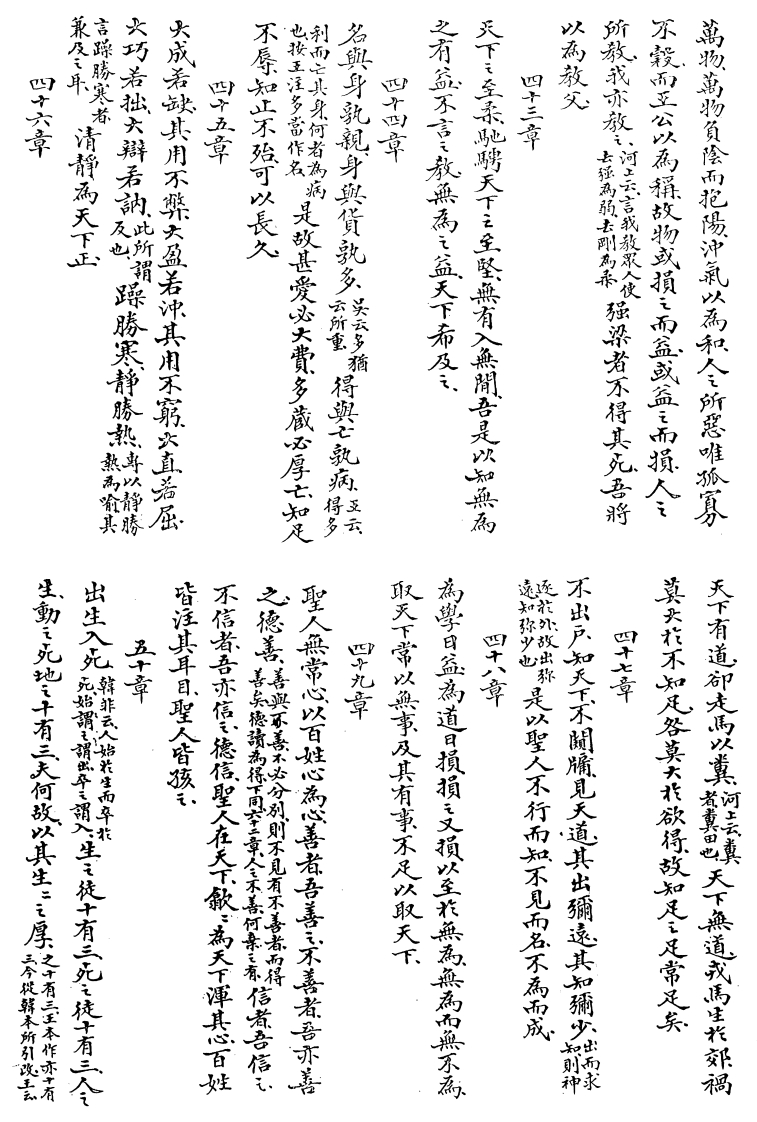 萬物、萬物負陰而抱陽、沖氣以為和、人之所惡唯孤寡
不穀、而王公以為稱、故物或損之而益、或益之而損、人之
所教、我亦教之、河上云、言我教眾人使去强為弱、去剛為柔强梁者不得其死、吾將
以為教父、
四十三章
天下之至柔、馳騁天下之至堅、無有入無間、吾是以知無為
之有益、不言之教、無為之益、天下希及之、
四十四章
名與身孰親、身與貨孰多、吴云、多猶云所重、得與亡孰病、王云、得多利而亡其身、何者為病也、按王注多當作名是故甚愛必大費、多藏必厚亡、知足
不辱、知止不殆、可以長久、
四十五章
大成若缺、其用不弊、大盈若沖、其用不窮、大直若屈、
大巧若拙、大辯若訥、此所謂反也、躁勝寒、靜勝熱、專以靜勝熱為喻、其言躁勝寒者、兼及之耳、清靜為天下正、
四十六章
天下有道、卻走馬以糞、河上云、糞者糞田也、天下無道、戎馬生於郊、禍
莫大於不知足、咎莫大於欲得、故知足之足常足矣、
四十七章
不出户、知天下、不闚牖、見天道、其出彌遠、其知彌少、出而求知、則神逐於外、故出弥遠知弥少也是以聖人不行而知、不見而名、不為而成、
四十八章
為學日益、為道日損、損之又損、以至於無為、無為而無不為、
取天下常以無事、及其有事、不足以取天下、
四十九章
聖人無常心、以百姓心為心、善者吾善之、不善者吾亦善
之、德善、善與不善、不必分別、則不見有不善者、而得善矣、德讀為得、下同、六十二章、人之不善、何棄之有信者吾信之、
不信者吾亦信之、德信、聖人在天下、歙〻為天下渾其心、百姓
皆注其耳目、聖人皆孩之、
五十章
出生入死、韓非云、人始於生而卒於死、始謂之出、卒謂之入、生之徒十有三、死之徒十有三、人之
生、動之死地、之十有三、夫何故、以其生〻之厚、之十有三、王本作亦十有三、今從韓本所引改、王云